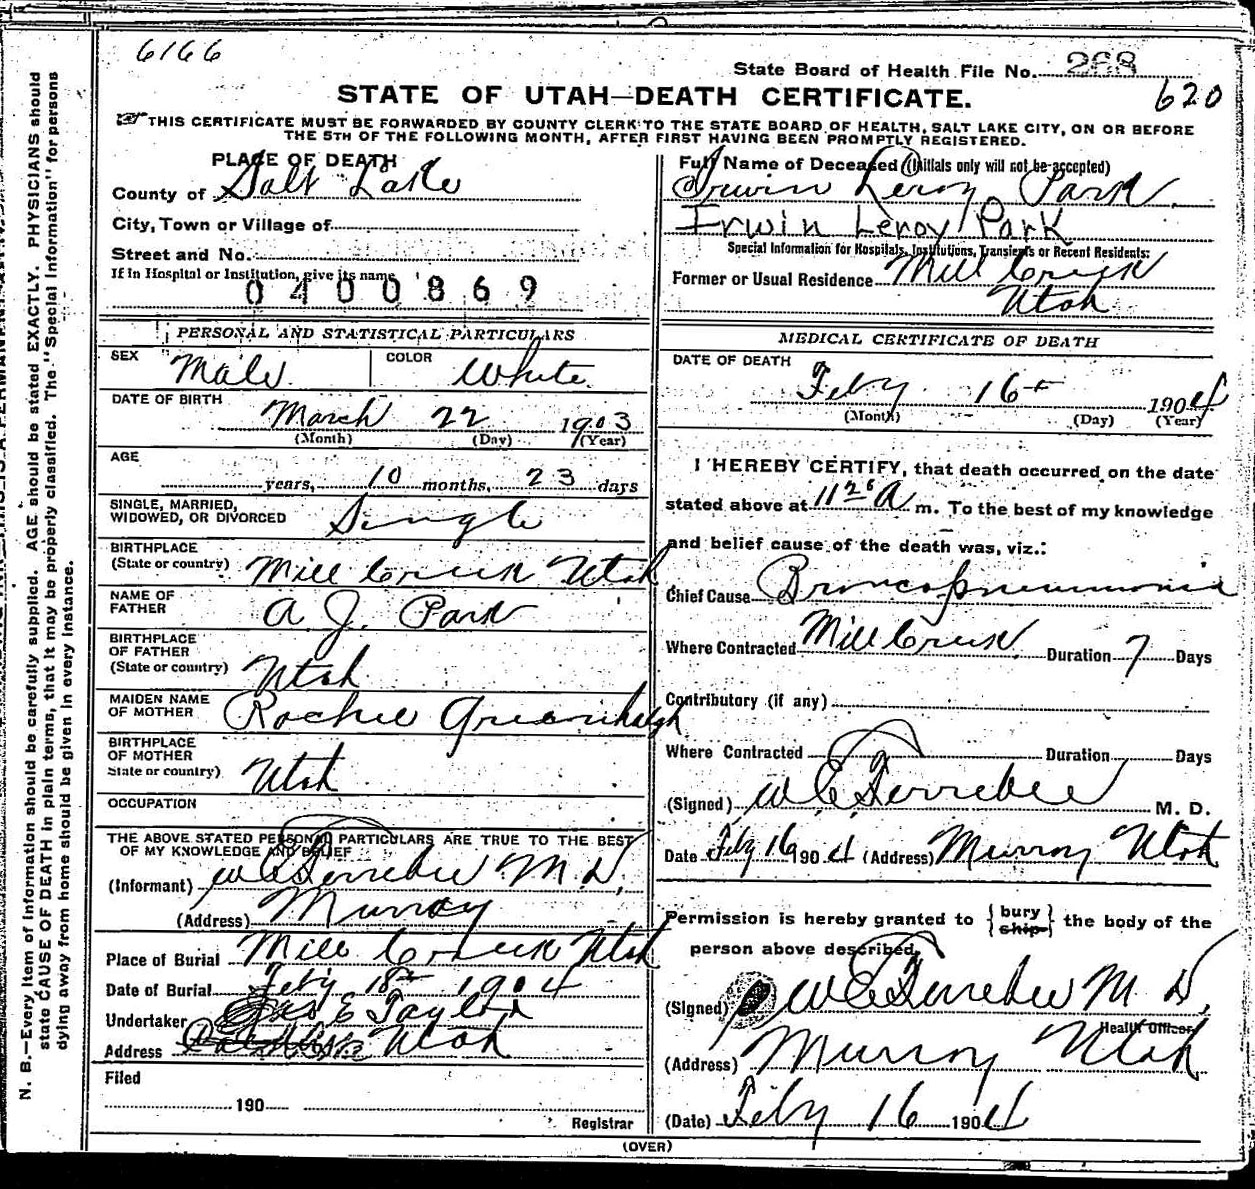 6166
State Board of Health File No. 268
620
STATE OF UTAH—DEATH CERTIFICATE.
THIS CERTIFICATE MUST BE FORWARDED BY COUNTY CLERK TO THE STATE BOARD OF HEALTH, SALT LAKE CITY, ON OR BEFORE
THE 5TH OF THE FOLLOWING MONTH, AFTER FIRST HAVING BEEN PROMPTLY REGISTERED.
PLACE OF DEATH
County of Salt Lake
City, Town or Village of
Street and No.
If in Hospital or Institution, give its name
0400869
PERSONAL AND STATISTICAL PARTICULARS
SEX Male COLOR White
DATE OF BIRTH March 22 1903
(Month) (Day) (Year)
AGE
years, 10 months, 23 days
SINGLE, MARRIED,
WIDOWED, OR DIVORCED Single
BIRTHPLACE
(State or country) Mill Creek Utah
NAME OF
FATHER A. J. Park
BIRTHPLACE
OF FATHER
(State or country) Utah
MAIDEN NAME
OF MOTHER Rochie Greenhalgh
BIRTHPLACE
OF MOTHER
State or country) Utah
OCCUPATION
THE ABOVE STATED PERSONAL PARTICULARS ARE TRUE TO THE BEST
OF MY KNOWLEDGE AND BELIEF
(Informant) W E Ferrebee M.D.
(Address) Murray
Place of Burial Mill Creek Utah
Date of Burial Feby 18th 1904
Undertaker E Taylor
Address Utah
Filed
190
Registrar
Full Name of Deceased (Initials only will not be accepted)
Irwin Leroy Park.
Erwin Leroy Park
Special Information for Hospitals, Institutions, Transients or Recent Residents:
Former or Usual Residence Mill Creek
Utah
MEDICAL CERTIFICATE OF DEATH
DATE OF DEATH
Feby 16th 1904
(Month) (Day) (Year)
I HEREBY CERTIFY, that death occurred on the date
stated above at 11 20 A m. To the best of my knowledge
and belief cause of the death was, viz.:
Chief Cause Broncopneumonia
Where Contracted Mill Creek. Duration 7 Days
Contributory (if any)
Where Contracted Duration Days
(Signed) W E Ferrebee M. D.
Date Feby 16 1904 (Address) Murray Utah
Permission is hereby granted to {bury ship} the body of the
person above described,
(Signed) W E Ferrebee M D.
Health Officer
(Address) Murray Utah
(Date) Feby 16 1904
(OVER)
N. B.—Every item of information should be carefully supplied. AGE should be stated EXACTLY. PHYSICIANS should
state CAUSE OF DEATH in plain terms, that it may be properly classified. The "Special Information" for persons
dying away from home should be given in every instance.